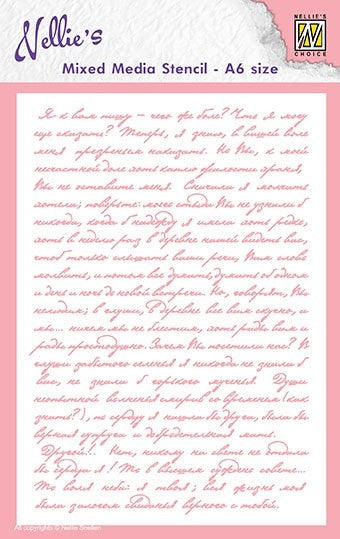 Nellie's
NELLIE'S
CHOICE
Mixed Media Stencil - A6 size
Я к вам пишу – чего же боле? Что я могу
еще сказать? Теперь, я знаю, в вашей воле
меня презреньем наказать. Но Вы, к моей
несчастной доле хоть каплю жалости храня,
Вы не оставите меня. Сначала я молчать
хотела; поверьте: моего стыда Вы не узнали б
никогда, когда б надежду я имела хоть редко,
хоть в неделю раз в деревне нашей видеть вас,
чтоб только слышать ваши речи, Вам слово
молвить, и потом все думать, думать об одном
и день и ночь до новой встречи. Но, говорят, Вы
нелюдим; в глуши, в деревне все вам скучно, и
мы... ничем мы не блестим, хоть рады вам и
рады простодушно. Зачем Вы посетили нас? В
глуши забытого селенья я никогда не знала б
вас, не знала б горького мученья. Души
неопытной волненья смирив со временем (как
знать?), по сердцу я нашла бы друга, была бы
верная супруга и добродетельная мать.
Другой!.. Нет, никому на свете не отдала
бы сердца я! То в вышнем суждено совете...
То воля неба: я твоя; вся жизнь моя
была залогом свиданья верного с тобой.
All copyrights © Nellie Snellen